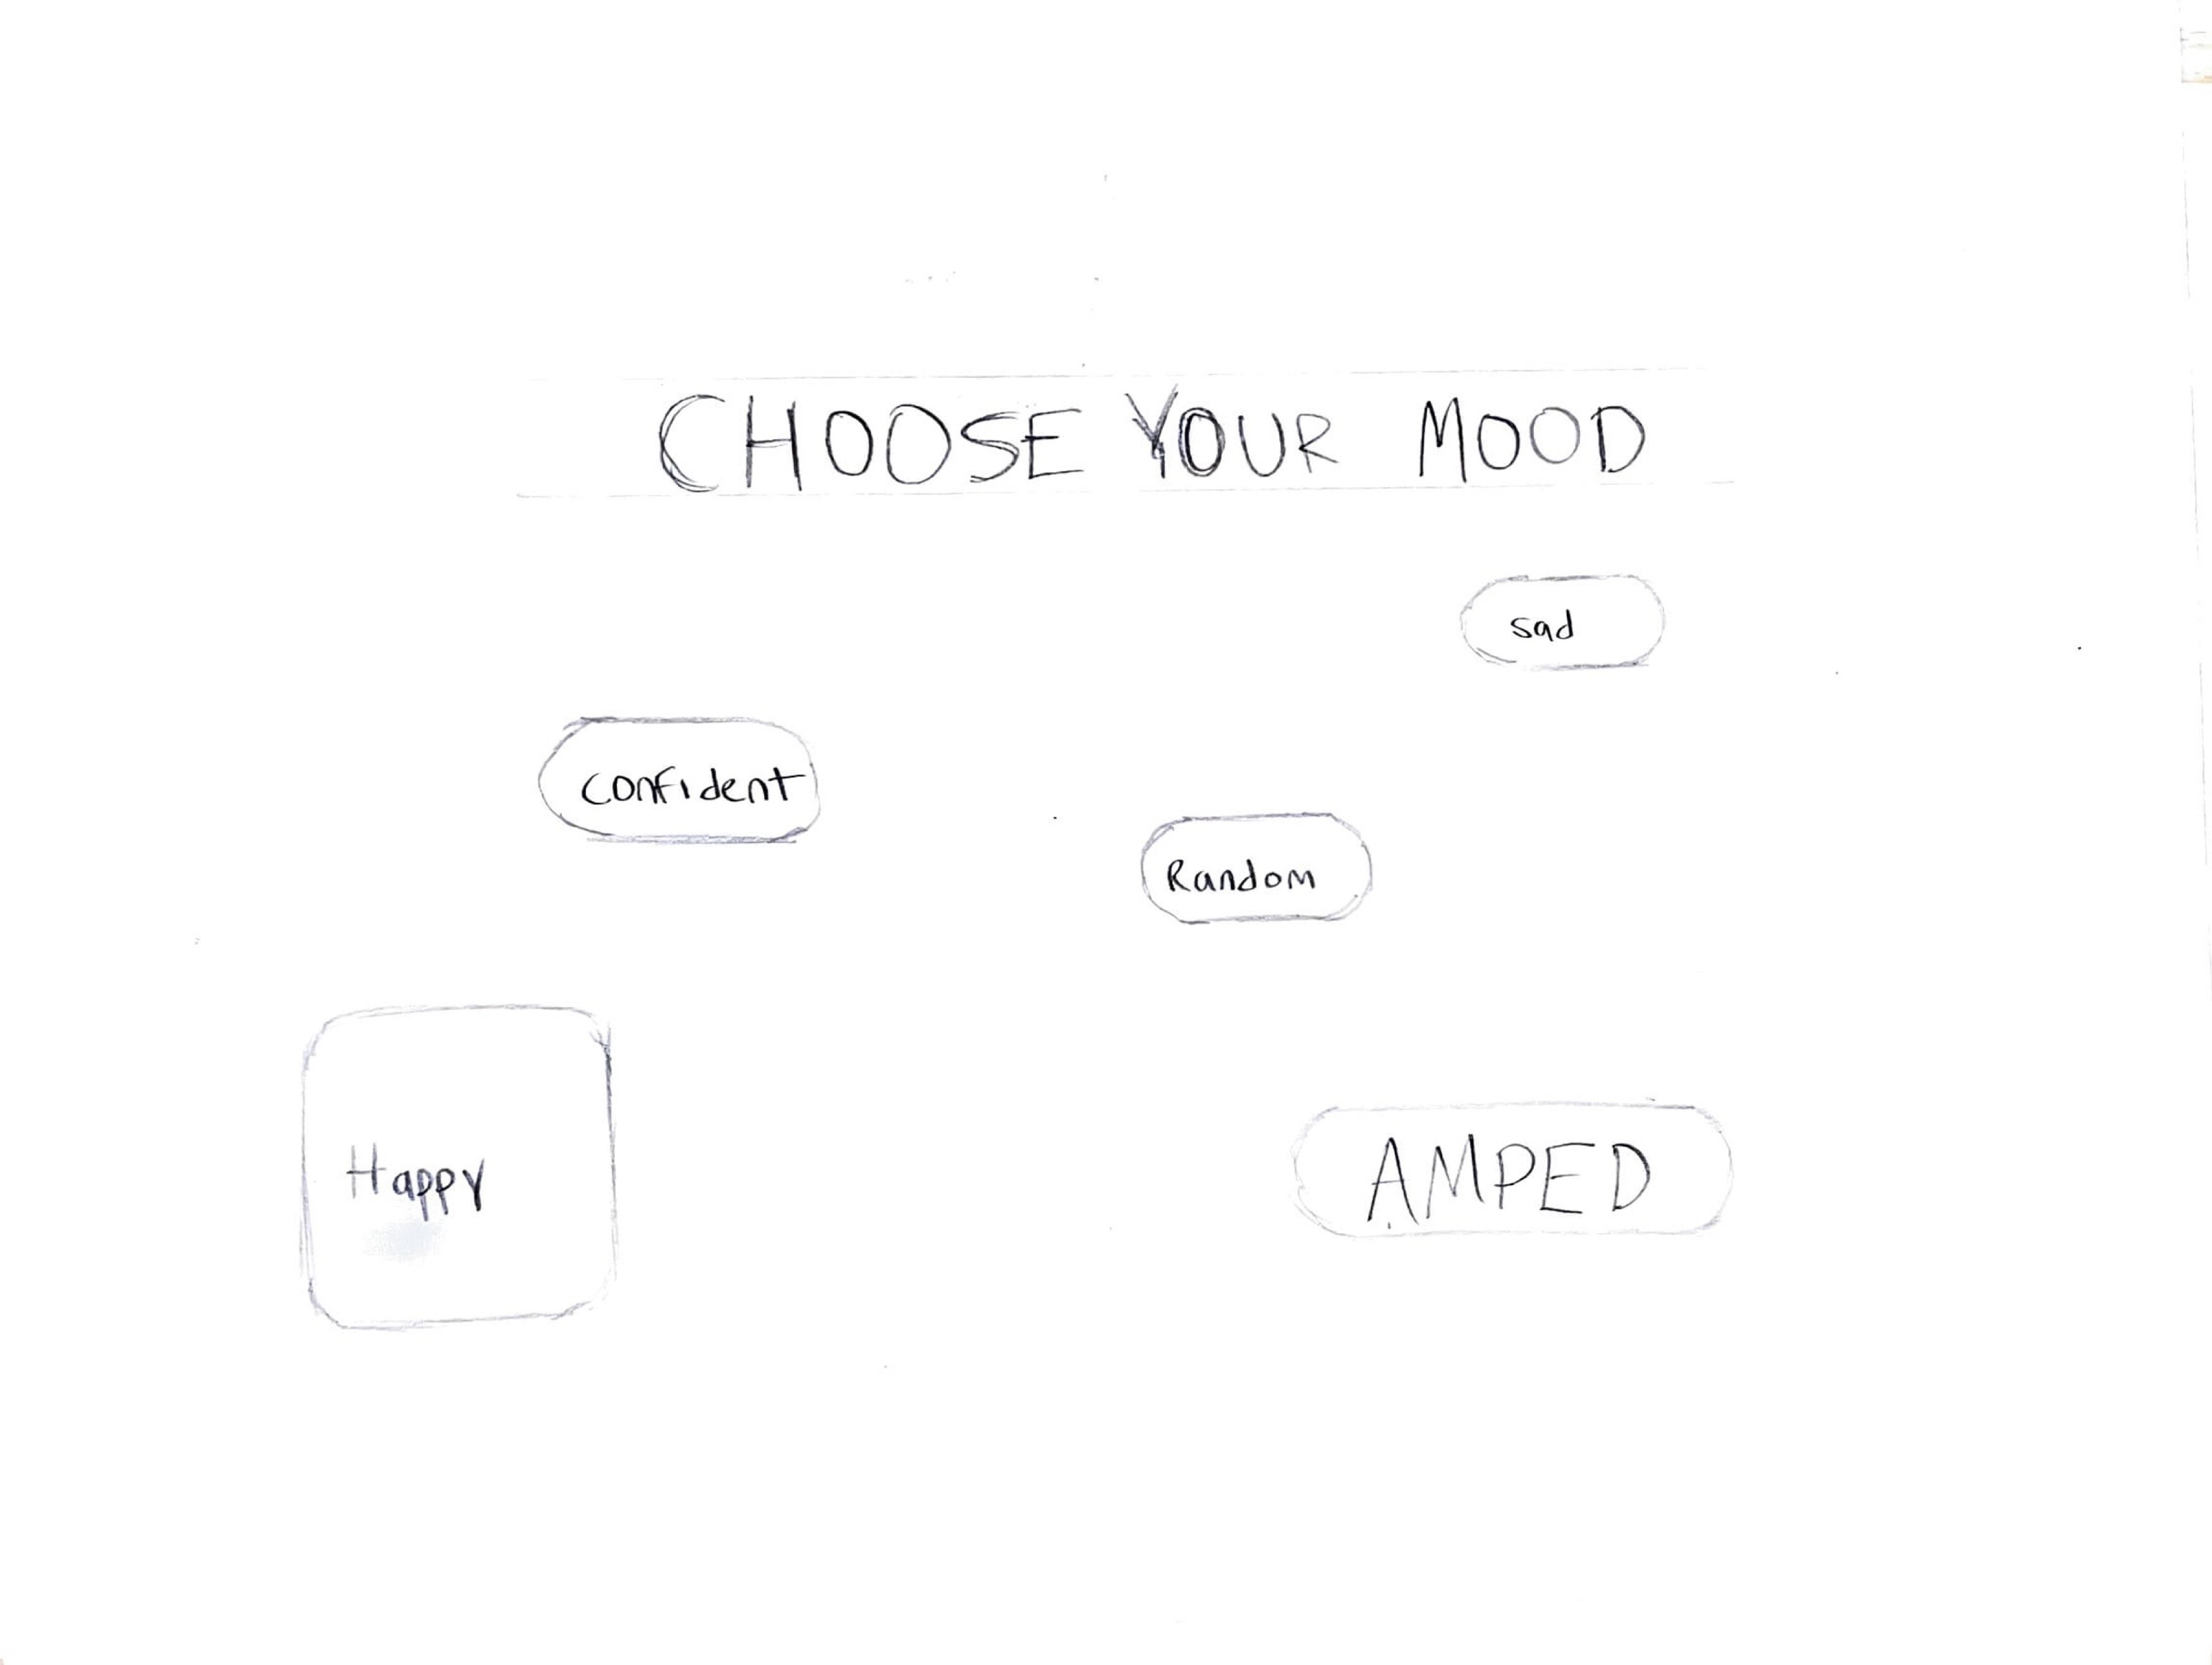 CHOOSE YOUR MOOD
sad
confident
Random
Happy
AMPED